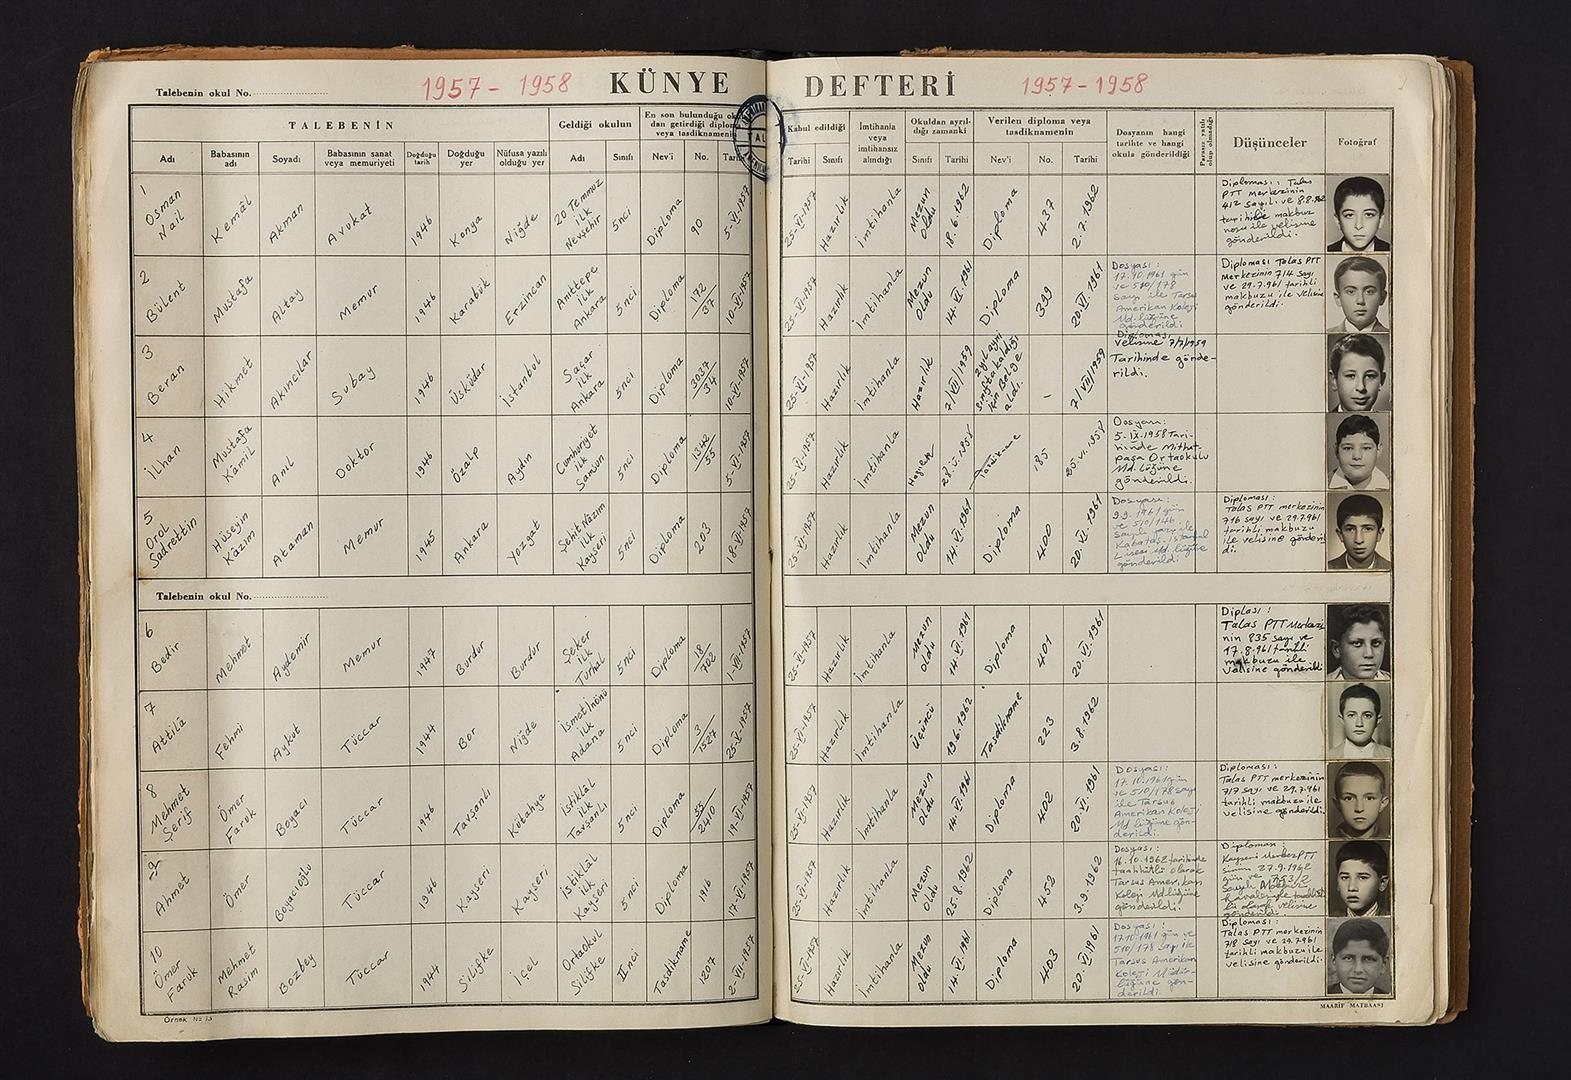 1957 - 1958 KÜNYE DEFTERİ 1957 - 1958
Talebenin okul No.
TALEBENİN
Geldiği okulun
En son bulunduğu okul-
dan getirdiği diploma
veya tasdiknamenin
Kabul edildiği
İmtihanla
veya
imtihansız
alındığı
Okuldan ayrıl-
dığı zamanki
Verilen diploma veya
tasdiknamenin
Dosyanın hangi
tarihte ve hangi
okula gönderildiği
Parasız yatılı
olup olmadığı
Düşünceler
Fotoğraf
Adı
Babasının
adı
Soyadı
Babasının sanat
veya memuriyeti
Doğduğu
tarih
Doğduğu
yer
Nüfusa yazılı
olduğu yer
Adı
Sınıfı
Nev'i
No.
Tarihi
Tarihi
Sınıfı
Sınıfı
Tarihi
Nev'i
No.
Tarihi
1
Osman
Nail
Kemâl
Akman
Avukat
1946
Konya
Niğde
20 Temmuz
ilk
Nevşehir
5nci
Diploma
90
5-VI-1957
25-VI-1957
Hazırlık
İmtihanla
Mezun
Oldu
18.6.1962
Diploma
437
2.7.1962
Diploması: Talas
PTT merkezinin
412 sayılı ve 8.8.962
tarihinde makbuz
nosu ile velisine
gönderildi.
2
Bülent
Mustafa
Altay
Memur
1946
Karabük
Erzincan
Anıttepe
ilk
Ankara
5nci
Diploma
172
37
10-VI-1957
25-VI-1957
Hazırlık
İmtihanla
Mezun
Oldu
14.VI.1961
Diploma
399
20.VI.1961
Dosyası:
17.10.1961 gün
ve 510/178
sayı ile Tarsus
Amerikan Koleji
Md.lüğüne
gönderildi
Diploması Talas PTT
Merkezinin 714 sayı
ve 29.7.961 tarihli
makbuzu ile velisine
gönderildi.
3
Beran
Hikmet
Akıncılar
Subay
1946
Üsküdar
İstanbul
Saçar
ilk
Ankara
5nci
Diploma
3037
34
10-VI-1957
25-VI-1957
Hazırlık
İmtihanla
Hazırlık
7/VII/1959
2 yıl aynı
sınıfta kaldığı
için Belge
aldı.
-
7/VII/1959
Diploması
velisine 7/7/1959
Tarihinde gönde-
rildi.
4
İlhan
Mustafa
Kâmil
Anıl
Doktor
1946
Özalp
Aydın
Cumhuriyet
ilk
Samsun
5nci
Diploma
1342
55
5-VI-1957
25-VI-1957
Hazırlık
İmtihanla
Hazırlık
Tasdikname
85
Dosyası:
5-IX-1958 Tari-
hinde Mithat-
paşa Ortaokulu
Md.lüğüne
gönderildi.
5
Orol
Sadrettin
Hüseyin
Kazım
Ataman
Memur
1945
Ankara
Yozgat
Şehit Nâzım
ilk
Kayseri
5nci
Diploma
203
18-VI-1957
25-VI-1957
Hazırlık
İmtihanla
Mezun
Oldu
14.VI.1961
Diploma
400
20.VI.1961
Dosyası:
9.9.1961 gün
ve 510/146
sayılı yazı ile
Kabataş-İstanbul
Lisesi Md.lüğüne
gönderildi
Diploması:
Talas PTT merkezinin
716 sayı ve 29.7.961
tarihli makbuzu
ile velisine gönderil
di.
Talebenin okul No.
6
Bedir
Mehmet
Aydemir
Memur
1947
Burdur
Burdur
Şeker
ilk
Turhal
5nci
Diploma
18
702
1-VII-1957
25-VI-1957
Hazırlık
İmtihanla
Mezun
Oldu
14.VI.1961
Diploma
401
20.VI.1961
Diplası:
Talas PTT Merkezi-
nin 835 sayı ve
17.8.961 tarihli
makbuzu ile
velisine gönderildi
7
Attilâ
Fehmi
Aykut
Tüccar
1944
Bor
Niğde
İsmet İnönü
ilk
Adana
5nci
Diploma
3
1527
25-VI-1957
25-VI-1957
Hazırlık
İmtihanla
Üçüncü
19.6.1962
Tasdikname
223
3.8.1962
8
Mehmet
Şerif
Ömer
Faruk
Boyacı
Tüccar
1946
Tavşanlı
Kütahya
İstiklal
ilk
Tavşanlı
5nci
Diploma
55
2410
19-VI-1957
25-VI-1957
Hazırlık
İmtihanla
Mezun
Oldu
14.VI.1961
Diploma
402
20.VI.1961
Dosyası:
17.10.1961 gün
ve 510/178 sayı
ile Tarsus
Amerikan Koleji
Md.lüğüne gön-
derildi.
Diploması:
Talas PTT merkezinin
717 sayı ve 29.7.961
tarihli makbuzu ile
velisine gönderildi.
9
Ahmet
Ömer
Boyacıoğlu
Tüccar
1946
Kayseri
Kayseri
İstiklal
ilk
Kayseri
5nci
Diploma
1916
17-VI-1957
25-VI-1957
Hazırlık
İmtihanla
Mezun
Oldu
25.8.1962
Diploma
452
3.9.1962
Dosyası:
16.10.1962 tarihinde
taahhütlü olarak
Tarsus Amerikan
Koleji Md.lüğüne
gönderildi.
Diploması:
Kayseri Merkez PTT
27.9.1962
gün ve 753/2
gönderildi.
10
Ömer
Faruk
Mehmet
Rasim
Bozbey
Tüccar
1944
Silifke
İçel
Ortaokul
Silifke
IInci
Tasdikname
1207
2-VII-1957
25-VI-1957
Hazırlık
İmtihanla
Mezun
Oldu
14.VI.1961
Diploma
403
20.VI.1961
Dosyası:
17.10.1961 gün ve
510/178 sayı ile
Tarsus Amerikan
Koleji Müdür-
lüğüne gön-
derildi
Diploması:
Talas PTT merkezinin
718 sayı ve 29.7.961
tarihli makbuzu ile
velisine gönderildi.
Örnek No 13
MAARİF MATBAASI